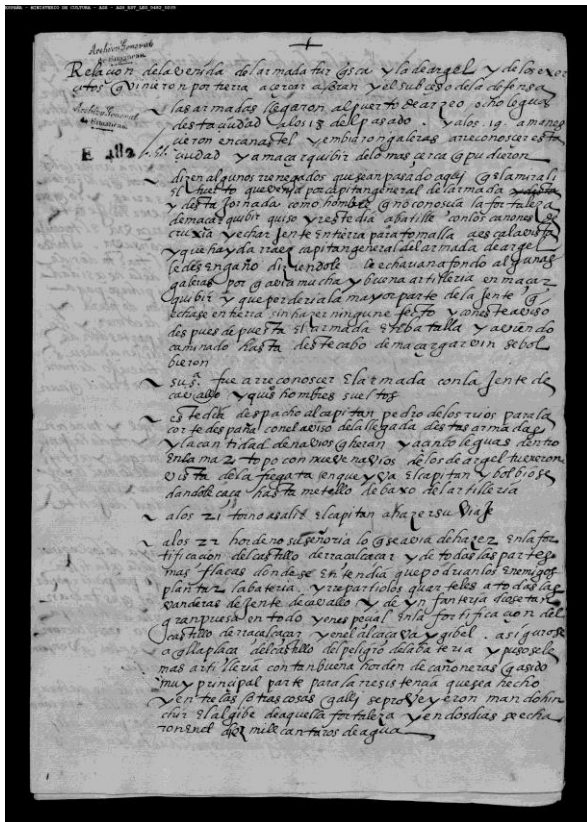 ESPAÑA - MINISTERIO DE CULTURA - AGS - AGS_EST_LEG_0482_0099
Archivo General
de Simancas
Relaçion de la venida del armada turquesca y la de argel y de los exer
citos q vinieron por tierra a cercar a oran y el subceso de la defensa
Archivo General
de Simancas
las armadas llegaron al puerto de arzeo ocho leguas
desta ciudad a los 18 del pasado. y a los .19. amanes
cieron en canastel y embiaron galeras a rreconoscer esta
E 482
ciudad y a maçarquibir de lo mas cerca q pudieron
dizen algunos renegados que sean pasado aqui q el amirali
que venia por capitan general de la armada
y desta jornada como hombre q no conoscia la fortaleza
de macarquibir quiso yr este dia a batille con los cañones de
cruxia y echar jente en tierra para tomalla a escala vista
y que hayda rraez capitan general del armada de argel
le desengaño diziendole le echarian a fondo algunas
galeras por q avia mucha y buena artilleria en macar
quibir y que perderia la mayor parte de la jente q
echase en tierra sin hazer ningun efecto y con este aviso
despues de puesta el armada en batalla y aviendo
caminado hasta deste cabo de macarquivir se bol
bieron
su s.ª fue a rreconoscer el armada con la jente de
cavallo y quis hombres sueltos
este dia despacho al capitan pedro de los rrios para la
corte despaña con el aviso de la llegada destas armadas
y la cantidad de navios q heran y a cinco leguas dentro
en la mar topo con nueve navios de los de argel tuvieron
vista de la fregata en que yva el capitan y bolbiose
dandole caça hasta metello debaxo del artilleria
a los 21 torno a salir el capitan a hazer su viaje
a los 22 hordeno su señoria lo q se avia de hazer en la for
tificacion del castillo de rraçalcaçar y de todas las partes
mas flacas donde se entendia que podrian los enemigos
plantar la bateria, y rrepartio los quarteles a todas las
vanderas de jente de cavallo y de ynfanteria diose tan
gran priesa en todo y en especial en la fortificaçion del
castillo de rraçalcaçar y en el alcaçava y gibel. asigurose
aquella plaça del castillo del peligro de la bateria y pusosele
mas artilleria con tan buena horden de cañoneras q a sido
muy principal parte para la rresistencia que sea hecho
y entre las otras cosas q alli se proveyeron mando hin
chir el algibe de aquella fortaleza y en dos dias se echa
ron en el diez mile cantaros de agua